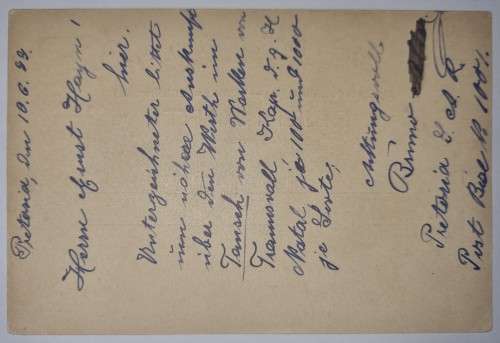 Pretoria, den 10.6.99.
Herrn Ernst Haym!
hier.
Unterzeichneter bittet
um nähere Auskunft
über den Werth im
Tausch von Marken von
Transvall Kap. d. g. H
Natal je 100 und 1000
je Sorte,
Achtungsvolle
Bruno
Pretoria Z. A. R
Port Box B 1001.